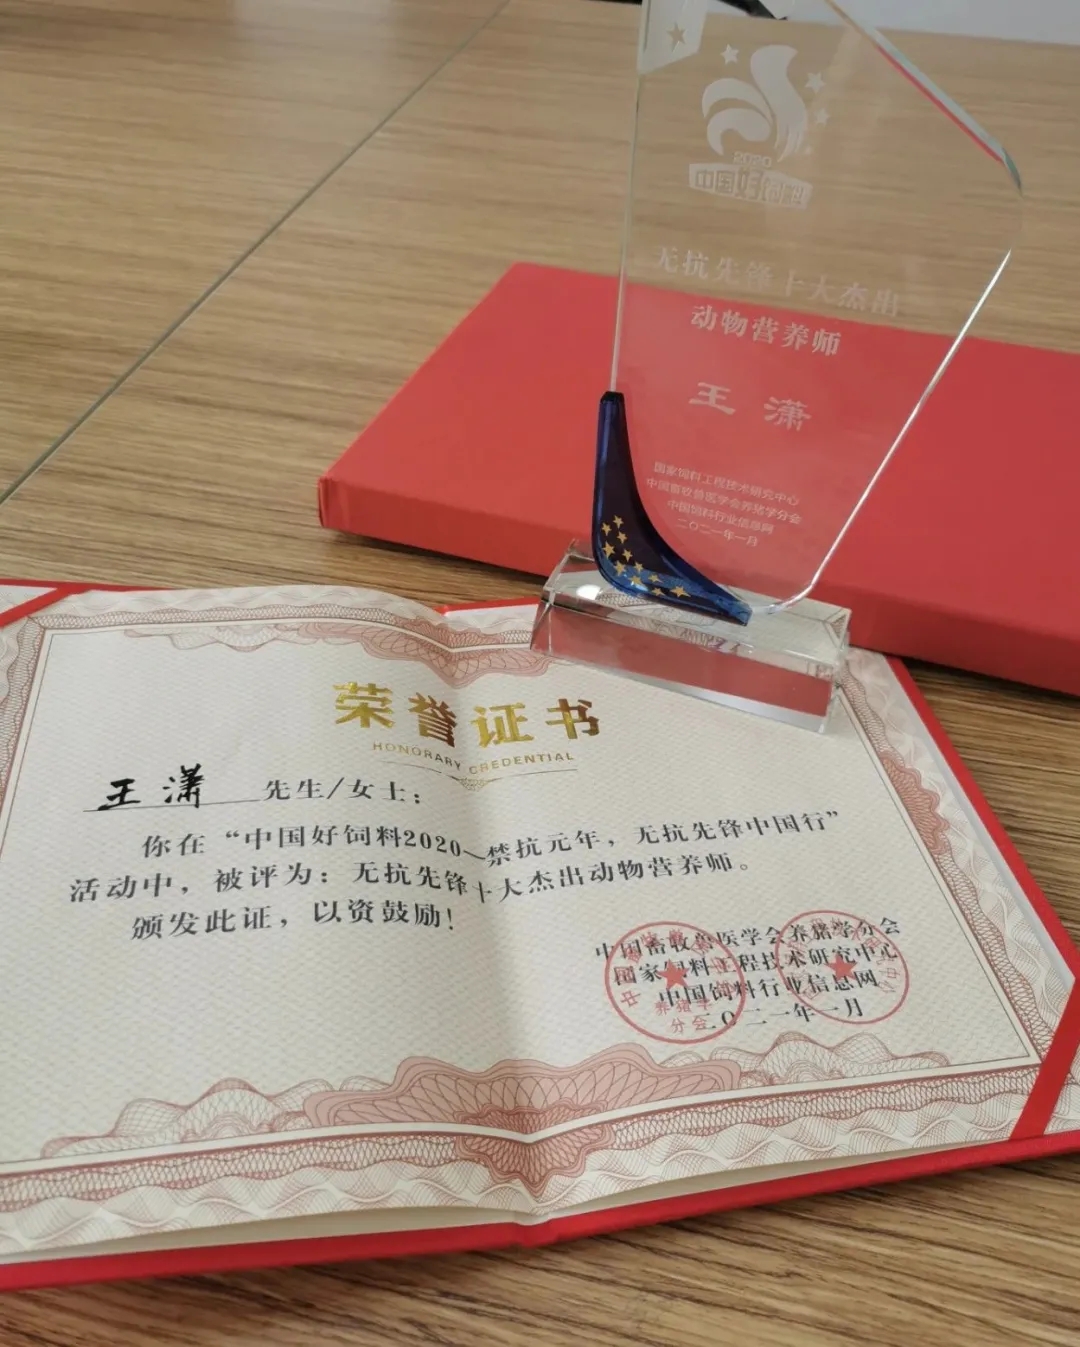 2020
中国好饲料
无抗先锋十大杰出
动物营养师
王潇
国家饲料工程技术研究中心
中国畜牧兽医学会养猪学分会
中国饲料行业信息网
二〇二一年一月
荣誉证书
HONORARY CREDENTIAL
王潇 先生/女士：
你在“中国好饲料2020—禁抗元年，无抗先锋中国行”
活动中，被评为：无抗先锋十大杰出动物营养师。
颁发此证，以资鼓励！
中国畜牧兽医学会养猪学分会
国家饲料工程技术研究中心
中国饲料行业信息网
二〇二一年一月
养猪学
分会